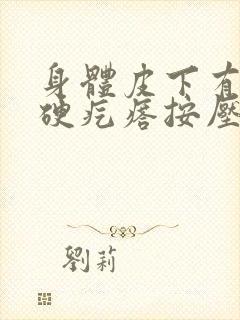 身體皮下有
硬疙瘩按壓
劉莉